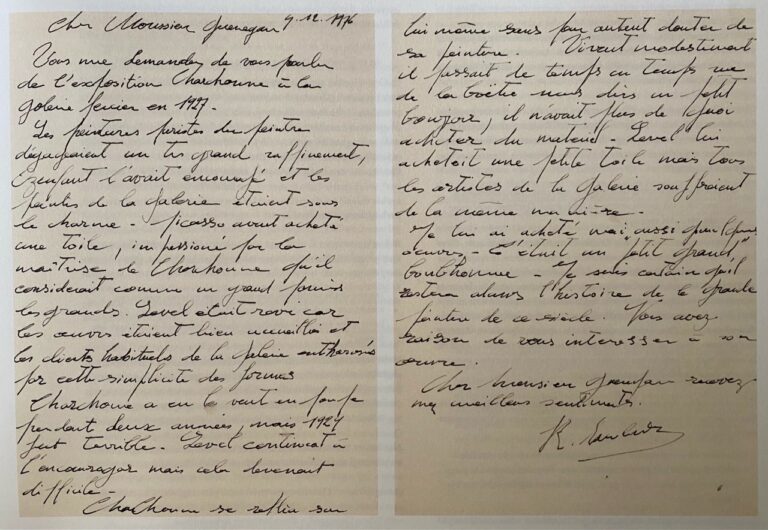 Cher Monsieur Guenegan 9.12.1976
Vous me demandez de vous parler
de l'exposition Charchoune à la
galerie Percier en 1927.
Les peintures puristes du peintre
dégageaient un très grand raffinement,
Ozenfant l'avait encouragé et les
peintres de la galerie étaient sous
le charme - Picasso avait acheté
une toile, impressionné par la
maîtrise de Charchoune qu'il
considérait comme un grand parmi
les grands. Level était ravi car
les œuvres étaient bien accueillies et
les clients habituels de la galerie enthousiasmés
par cette simplicité des formes
Charchoune a eu le vent en poupe
pendant deux années, mais 1929
fut terrible - Level continuait à
l'encourager mais cela devenait
difficile -
Charchoune se reflia sur
lui même sans pour autant douter de
sa peinture. Vivant modestement
il passait de temps en temps rue
de la Boëtie nous dire un petit
bonjour, il n'avait plus de quoi
acheter du matériel - Level lui
achetait une petite toile mais tous
les artistes de la galerie souffraient
de la même manière -
Je lui ai acheté moi aussi quelques
œuvres - C'était un petit "grand"
bonhomme - Je suis certain qu'il
restera dans l'histoire de la grande
peinture de ce siècle. Vous avez
raison de vous intéresser à son
œuvre.
Cher Monsieur Guenegan recevez
mes meilleurs sentiments.
R.